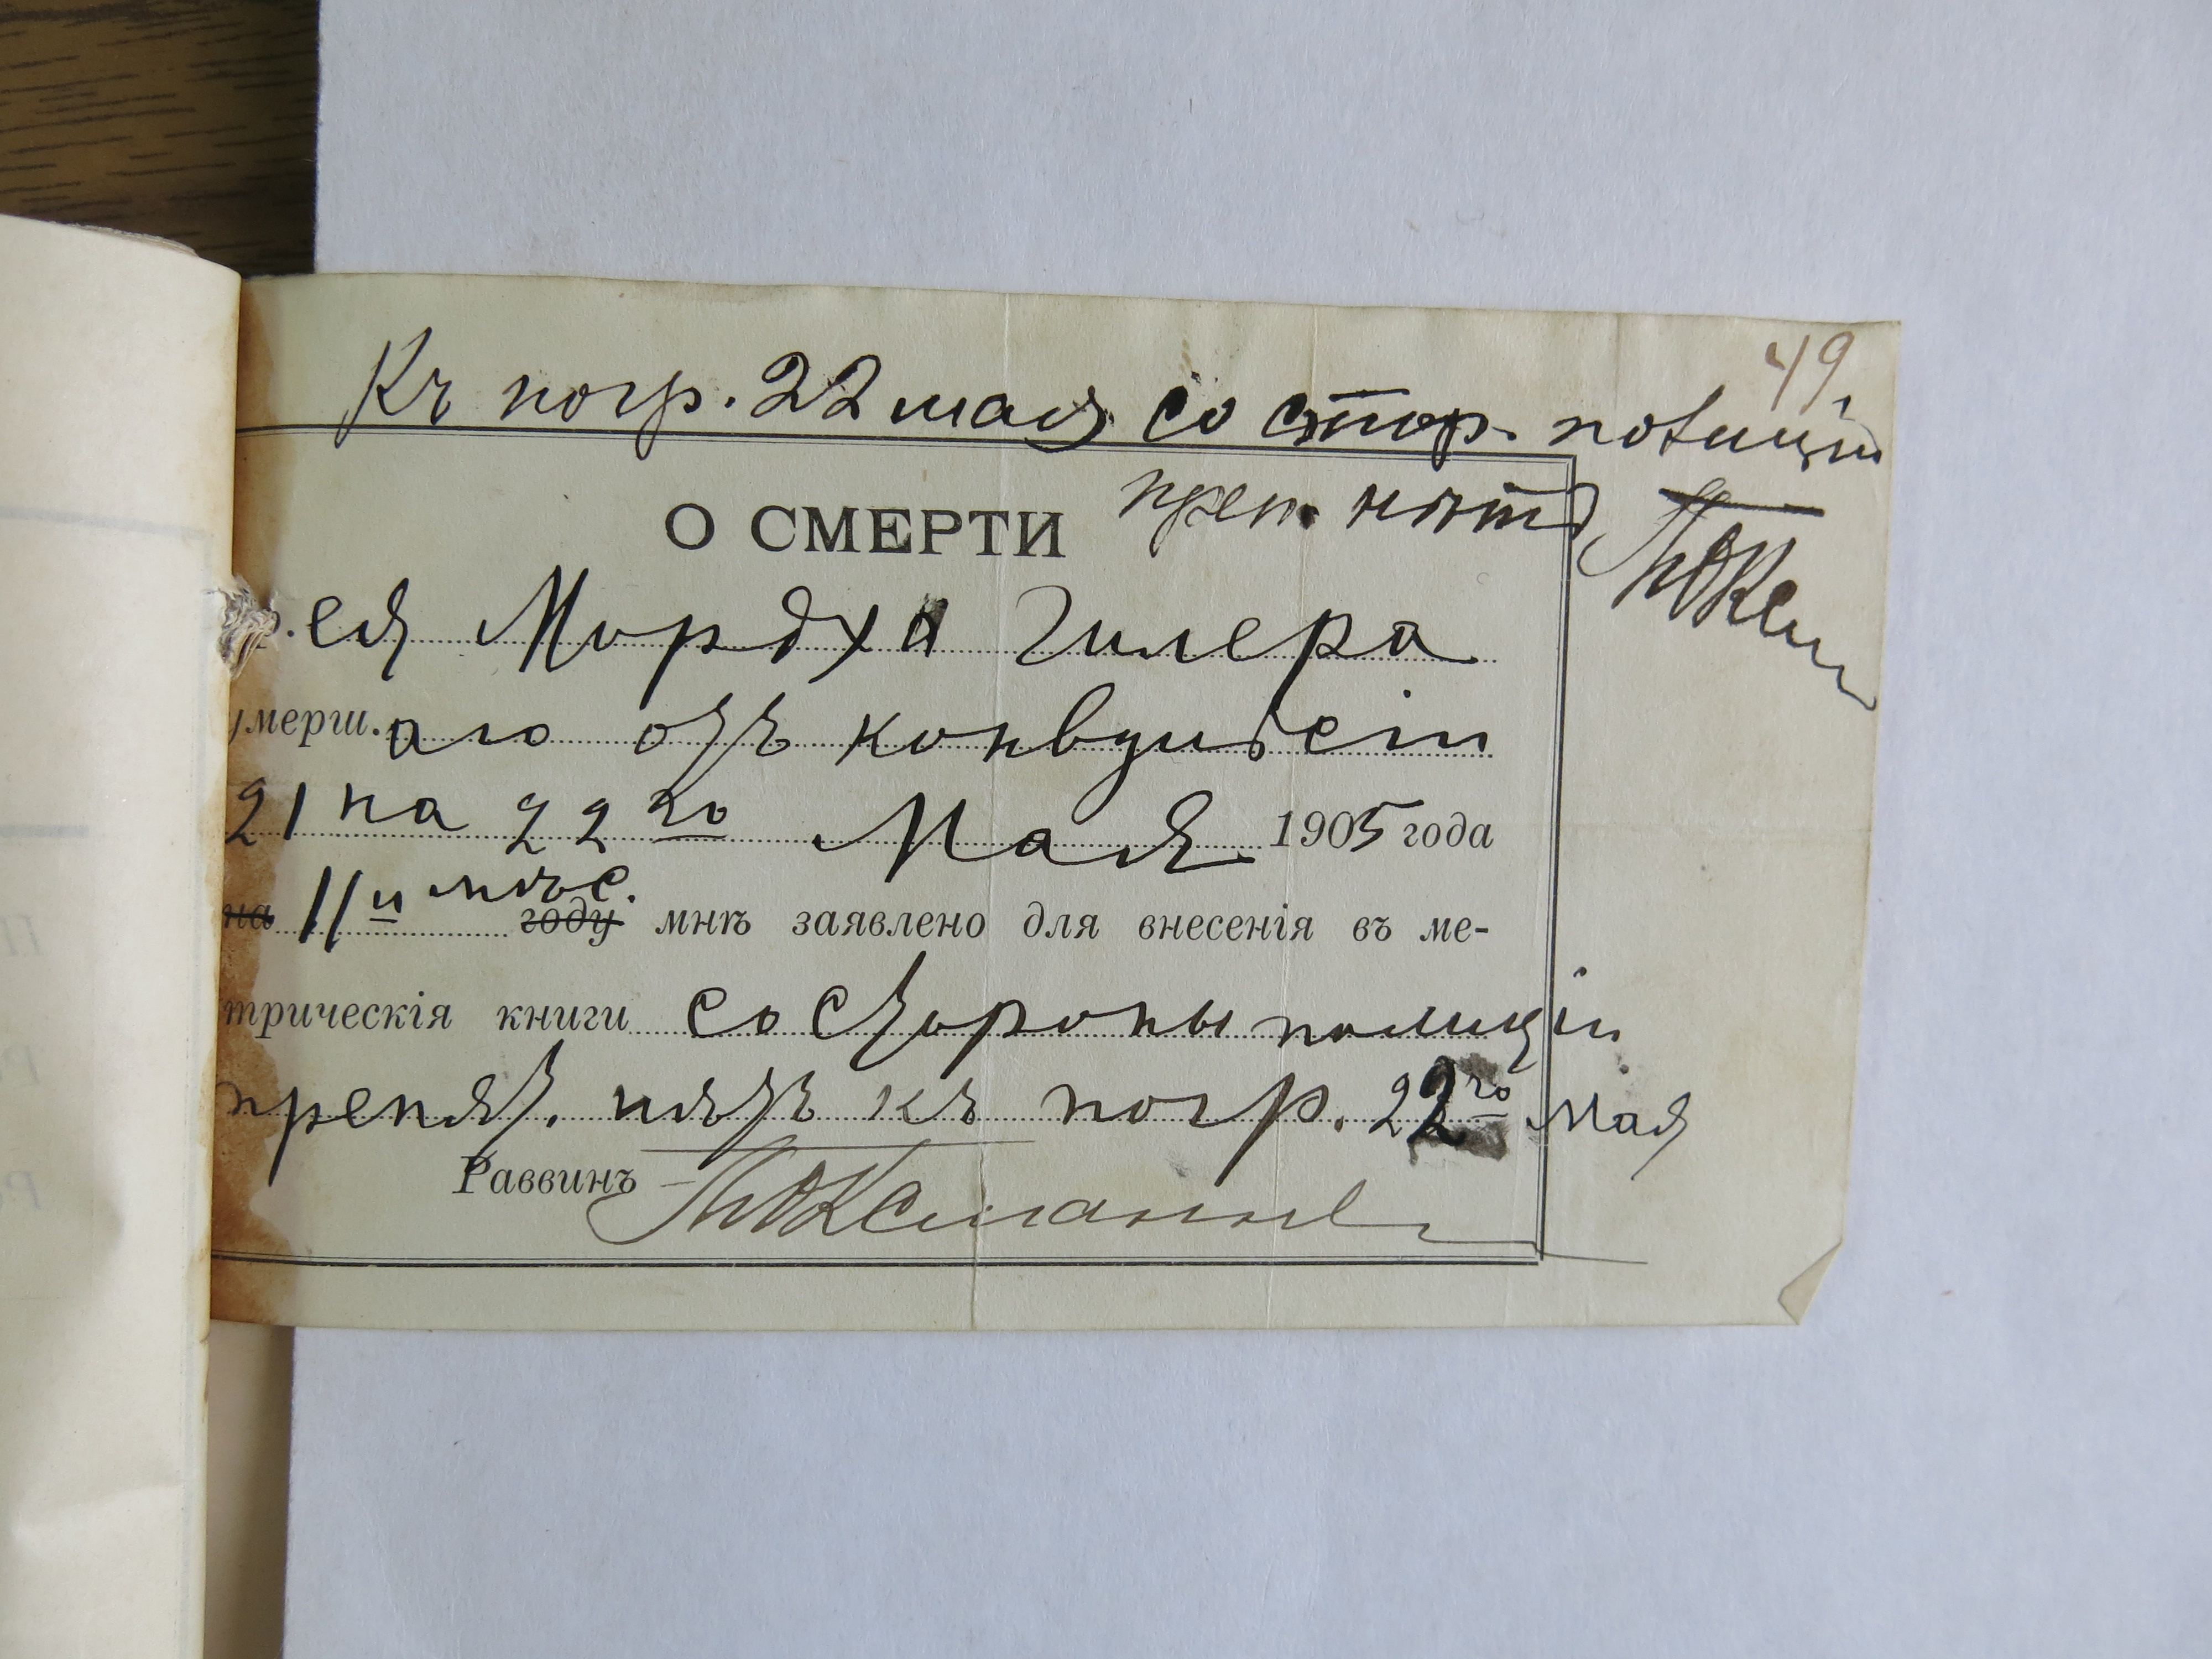 49
Къ погр. 22 мая со стор. полиціи
О СМЕРТИ преп. нѣтъ
р. ея Мордха Гилера
умерш.аго отъ конвульсіи
21 на 22 го Мая 1905 года
на 11 и мѣс. году мнѣ заявлено для внесенія въ ме-
трическія книги со стороны полиціи
препят. нѣтъ къ погр. 22го мая
Раввинъ